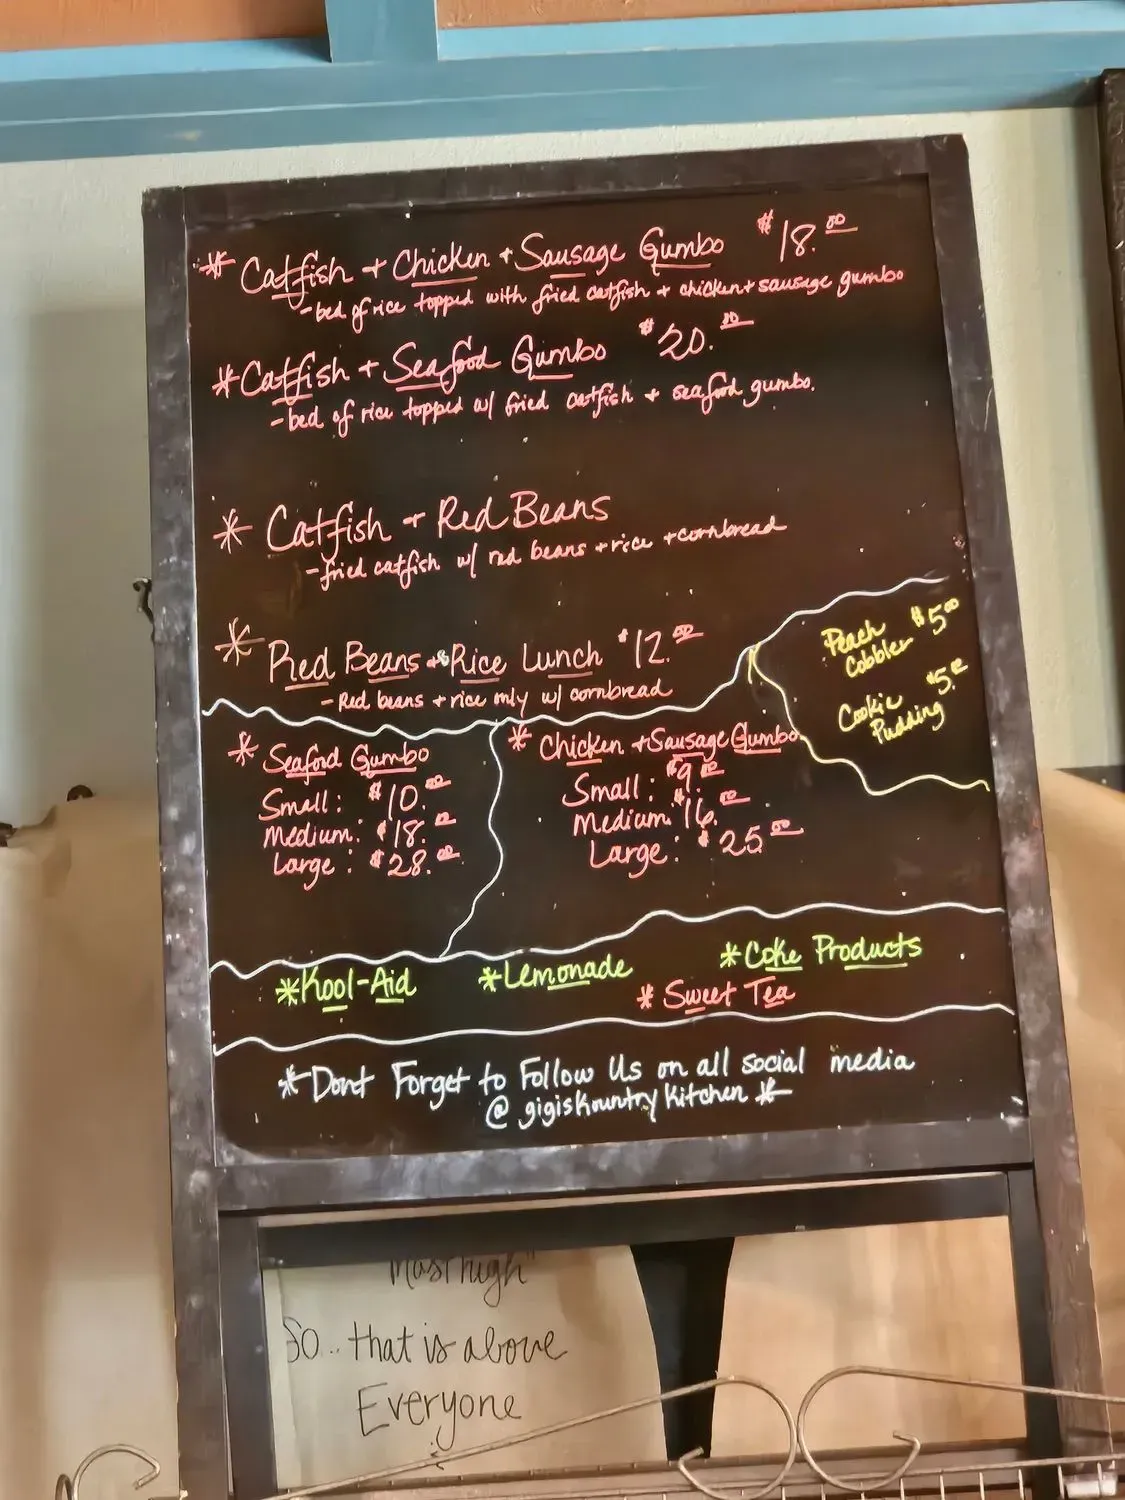 * Catfish + Chicken + Sausage Gumbo $18.00
- bed of rice topped with fried catfish + chicken + sausage gumbo
* Catfish + Seafood Gumbo $20.00
- bed of rice topped w/ fried catfish + seafood gumbo.
* Catfish + Red Beans
- fried catfish w/ red beans + rice + cornbread
* Red Beans & Rice Lunch $12.00
- Red beans + rice only w/ cornbread
Peach $5.00
Cobbler
Cookie $5.00
Pudding
* Seafood Gumbo
Small: $10.00
Medium: $18.00
Large: $28.00
* Chicken + Sausage Gumbo
Small: $9.00
Medium: $16.00
Large: $25.00
* Kool-Aid * Lemonade * Coke Products
* Sweet Tea
* Dont Forget to Follow Us on all social media
@ gigiskountrykitchen *
Most high"
So.. that is above
Everyone